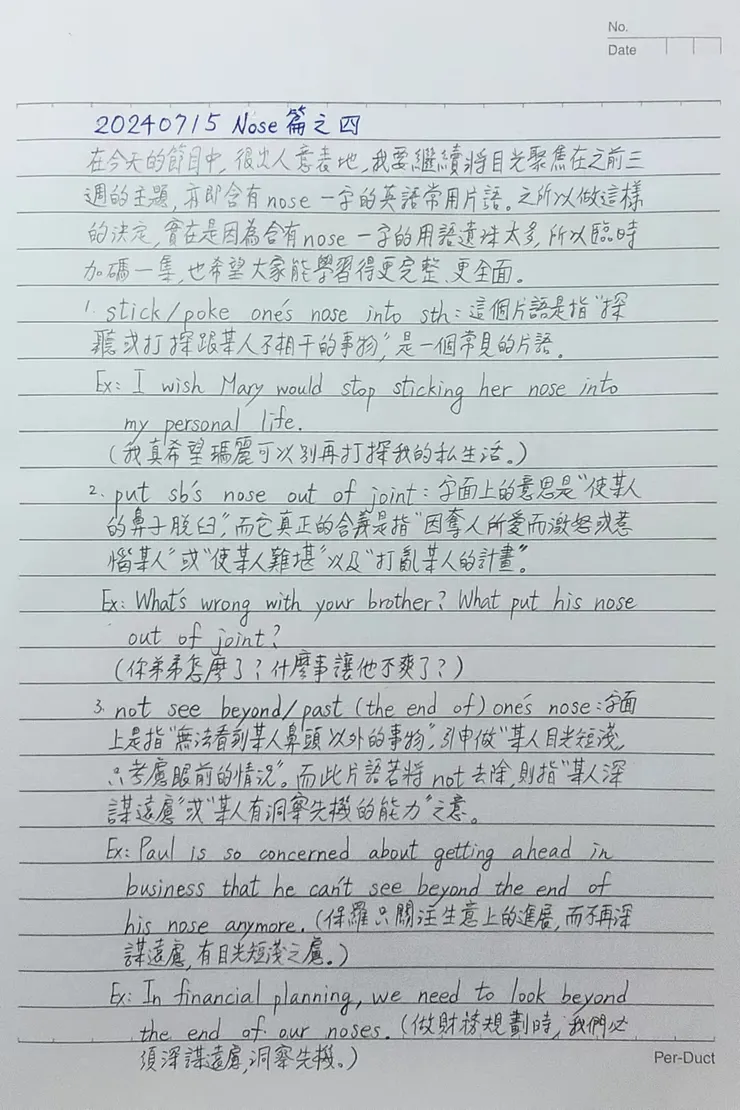 No.
Date
20240715 Nose 篇之四
在今天的節目中, 很出人意表地, 我要繼續將目光聚焦在之前三
週的主題, 亦即含有 nose 一字的英語常用片語。之所以做這樣
的決定, 實在是因為含有 nose 一字的用語遺珠太多, 所以臨時
加碼一集, 也希望大家能學習得更完整、更全面。
1. stick/poke one's nose into sth: 這個片語是指“探
聽或打探跟某人不相干的事物”, 是一個常見的片語。
Ex: I wish Mary would stop sticking her nose into
my personal life.
(我真希望瑪麗可以別再打探我的私生活。)
2. put sb's nose out of joint: 字面上的意思是“使某人
的鼻子脫臼”, 而它真正的含義是指“因奪人所愛而激怒或惹
惱某人”或“使某人難堪”以及“打亂某人的計畫”。
Ex: What's wrong with your brother? What put his nose
out of joint?
(你弟弟怎麼了? 什麼事讓他不爽了?)
3. not see beyond/past (the end of) one's nose: 字面
上是指“無法看到某人鼻頭以外的事物”, 引申做“某人目光短淺,
只考慮眼前的情況”。而此片語若將 not 去除, 則指“某人深
謀遠慮”或“某人有洞察先機的能力”之意。
Ex: Paul is so concerned about getting ahead in
business that he can't see beyond the end of
his nose anymore. (保羅只關注生意上的進展, 而不再深
謀遠慮, 有目光短淺之慮。)
Ex: In financial planning, we need to look beyond
the end of our noses. (做財務規劃時, 我們必
須深謀遠慮, 洞察先機。)
Per-Duct